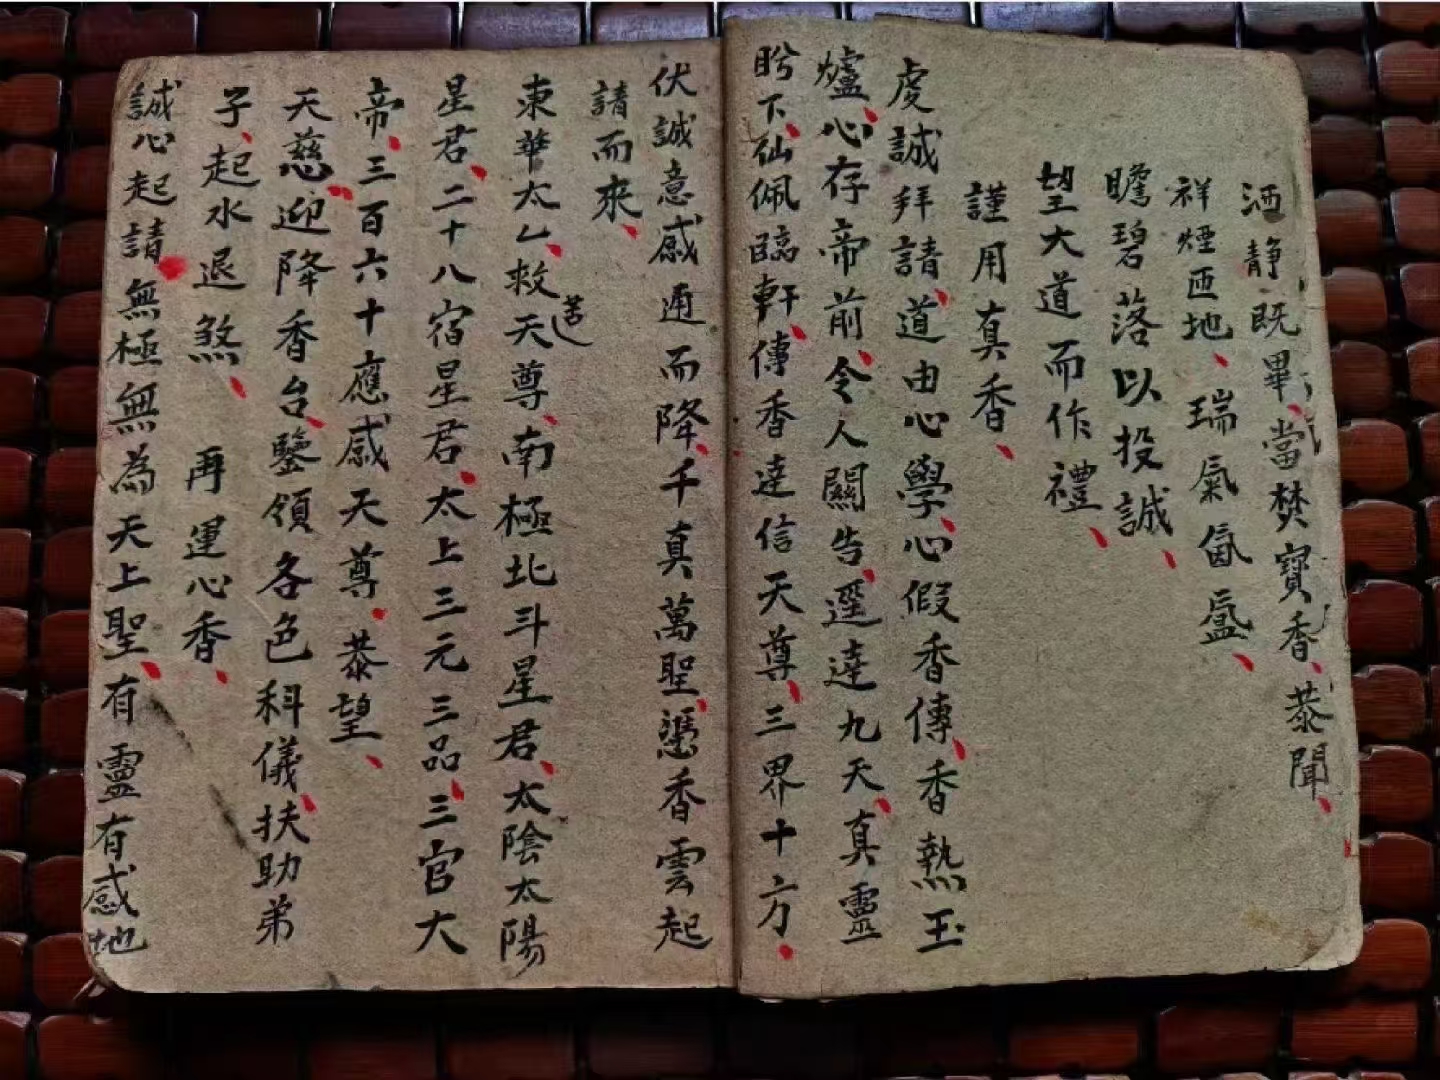 洒静既畢、當焚寳香、恭聞、
祥煙匝地、瑞氣氤氳、
瞻碧落以投誠、
望大道而作禮、
謹用真香、
虔誠拜請、道由心學、心假香傳、香熱玉
爐、心存帝前、令人關告、逕達九天、真靈
盻下、仙佩臨軒、傳香達信天尊、三界十方、
伏誠意感通而降、千真萬聖、憑香雲起
請而來、
東華太乙、救苦天尊、南極北斗星君、太陰太陽
星君、二十八宿星君、太上三元三品、三官大
帝、三百六十應感天尊、恭望、
天慈、迎降香台、鑒領各色科儀、扶助弟
子、起水退煞、再運心香、
誠心起請、無極無為天上聖、有靈有感地